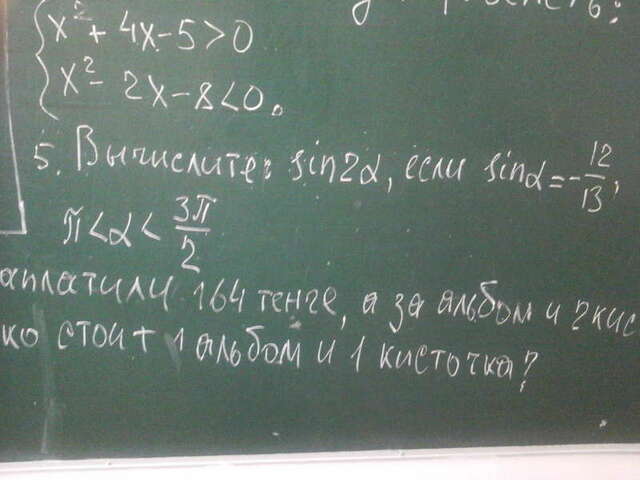 x² + 4x - 5 > 0
x² - 2x - 8 < 0.
5. Вычислите: sin2α, если sinα = -12/13,
π < α < 3π/2
аплатили 164 тенге, а за альбом и 2 кис
ко стоит 1 альбом и 1 кисточка?